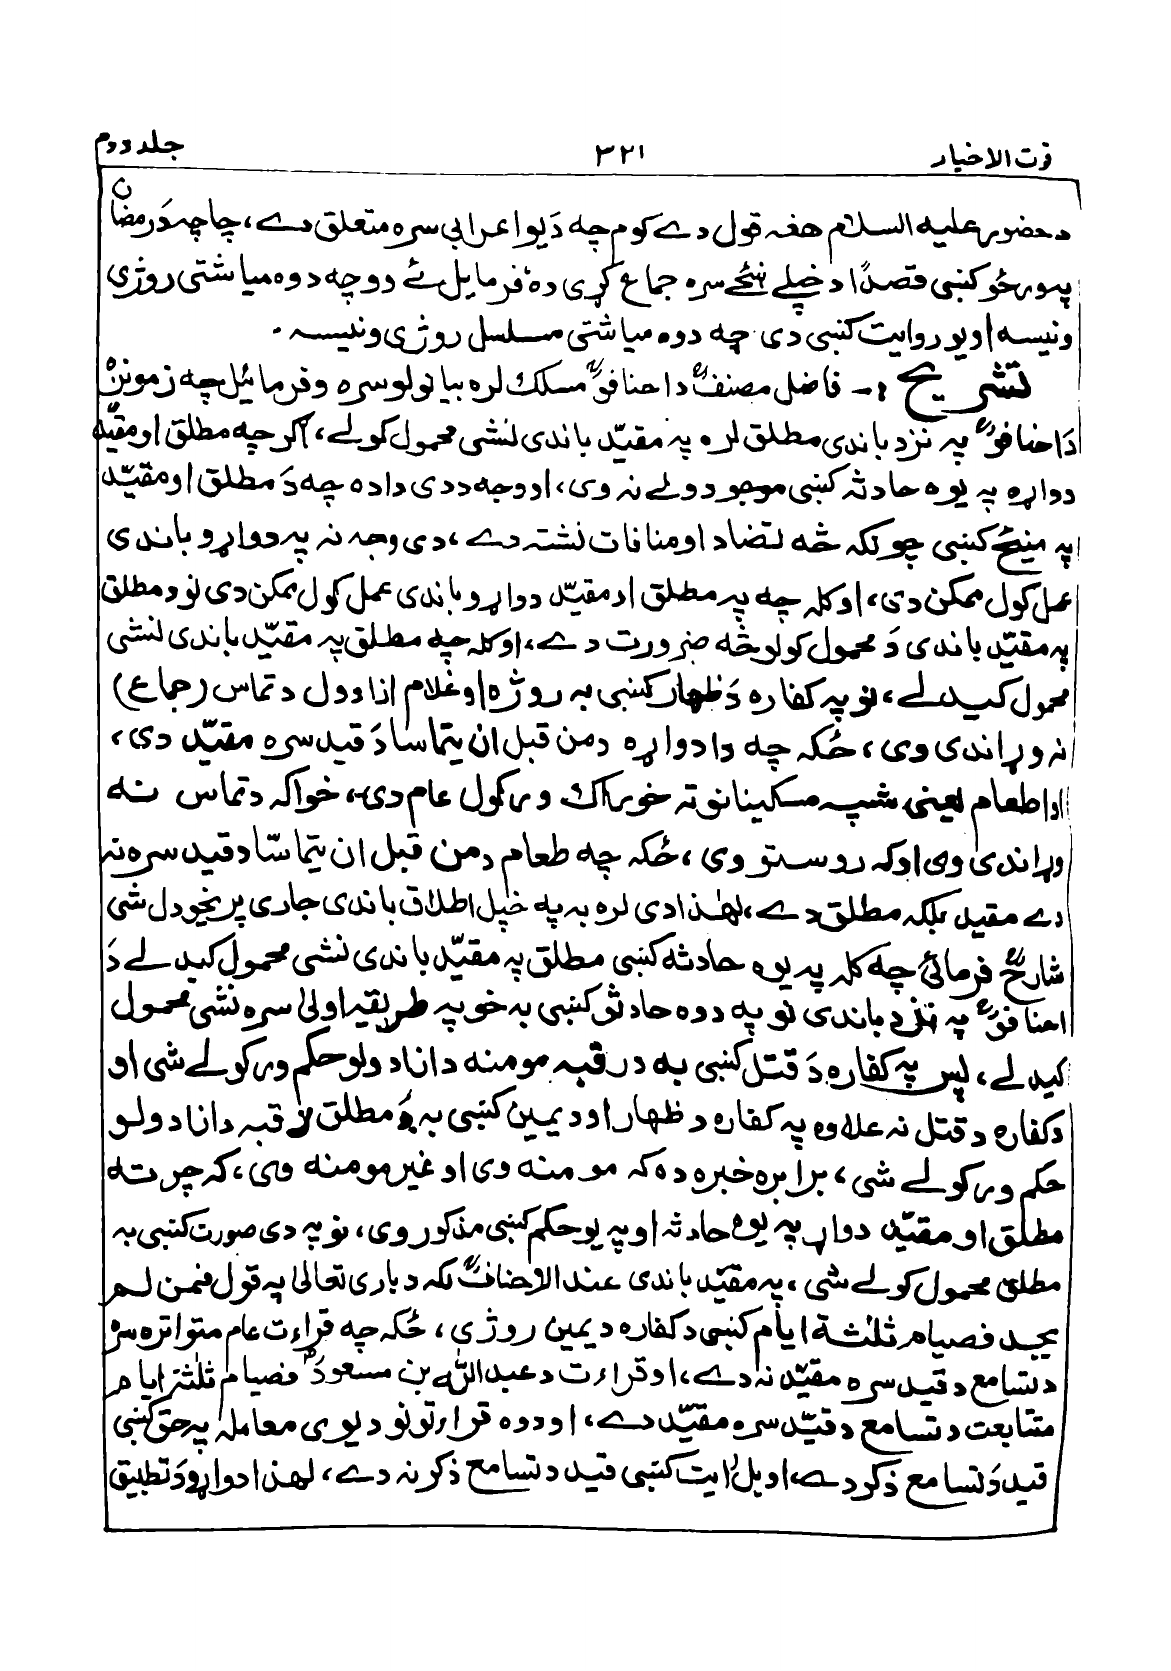 قوت الاخیار ۳۲۱ جلد دوم
د حضور علیه السلام هغه قول دے کوم چه دَ یوا عرابی سره متعلق دے، چا چه دَ رمضان
په ورځو کښی قصدًا د خپلے ښځے سره جماع کړی ده فرمایل ئے دوو چه دوه میاشتی روژی
ونیسه او یو روایت کښی دی چه دوه میاشتی مسلسل روژی ونیسه ۔
تشریح :- فاضل مصنفؒ د احنافوؒ مسلک لره بیانولو سره وفرمائیل چه زمونږ
دَ احنافوؒ په نزد باندی مطلق لره په مقیّد باندی نشی محمول کولے، اگرچه مطلق او مقیّد
دواړه په یوه حادثه کښی موجود ولے نه وی، او وجه ددی داده چه دَ مطلق او مقیّد
په مینځ کښی چونکه څه تضاد او منافات نشته دے، دی وجه نه په دواړو باندی
عمل کول ممکن دی، او کله چه په مطلق او مقیّد دواړو باندی عمل کول ممکن دی نو د مطلق
په مقیّد باندی دَ محمول کولو څه ضرورت دے، او کله چه مطلق په مقیّد باندی نشی
محمول کیدلے، نو په کفاره دَ ظهار کښی به روژه او غلام ازادول د تماس (جماع)
نه وړاندی وی، ځکه چه دا دواړه دمن قبل ان یتماسا دَ قید سره مقیّد دی،
او اطعام یعنی شپیه مسکینانو ته خوراک ورکول عام دی، خواکه د تماس نه
وړاندی وی اوکه روستو وی، ځکه چه طعام دمن قبل ان یتماسّا د قید سره نه
دے مقید بلکه مطلق دے، لهٰذا دی لره به په خپل اطلاق باندی جاری پریخودل شی
شارحؒ فرمائی چه کله په یوه حادثه کښی مطلق په مقیّد باندی نشی محمول کیدلے دَ
احنافوؒ په نزد باندی نو په دوه حادثو کښی به خو په طریقه اولیٰ سره نشی محمول
کیدلے، پس په کفاره دَ قتل کښی به د رقبه مومنه د ازادولو حکم ورکولے شی او
د کفاره د قتل نه علاوه په کفاره د ظهار او د یمین کښی به دَ مطلق رقبه د ازادولو
حکم ورکولے شی، برابره خبره ده که مومنه وی او غیر مومنه وی، که چرته
مطلق او مقیّد دواړه په یوه حادثه او په یو حکم کښی مذکور وی، نو په دی صورت کښی به
مطلق محمول کولے شی، په مقیّد باندی عند الاحنافؒ لکه د باری تعالیٰ په قول فمن لم
یجد فصیام ثلثة ایام کښی د کفاره د یمین روژی، ځکه چه قراءت عام متواتره سره
د تتابع د قید سره مقیّد نه دے، او قراءت د عبد اللہ بن مسعودؓ فصیام ثلثة ایام
متتابعت د تتابع د قیّد سره مقیّد دے، او دوه قراءتونو د یوی معاملے په حق کښی
قید دَ تتابع ذکر دے، او بل ایت کښی قید د تتابع ذکر نه دے، لهٰذا دواړو دَ تطبیق